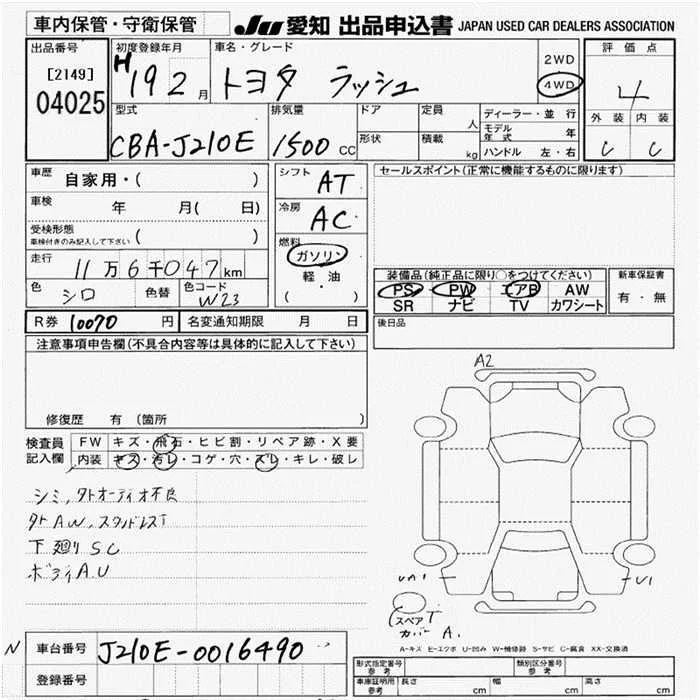 車内保管・守衛保管
JU 愛知 出品申込書 JAPAN USED CAR DEALERS ASSOCIATION
出品番号
[2149]
04025
初度登録年月
H19 2 月
車名・グレード
トヨタ ラッシュ
2WD
4WD
評価点
4
外装 内装
C C
型式
CBA-J210E
排気量
1500 CC
ドア
形状
定員
人
積載
kg
ディーラー・並 行
モデル年式 年
ハンドル 左・右
車歴
自家用・( )
車検
年 月( 日)
受検形態
車検付きのみ記入して下さい ( )
走行
11万6千047km
色
シロ
色替
色コード
W23
シフト
AT
冷房
AC
燃料
ガソリン
軽・油
( )
セールスポイント(正常に機能するものに限ります)
装備品(純正品に限り○をつけてください)
PS PW エアB AW
SR ナビ TV カワシート
新車保証書
有・無
R券 10070 円
名変通知期限 月 日
後日品
注意事項申告欄(不具合内容等は具体的に記入して下さい)
修復歴 有 (箇所 )
検査員
記入欄
FW キズ・飛石・ヒビ割・リペア跡・X要
内装 キズ・汚レ・コゲ・穴・ズレ・キレ・破レ
シミ、外オーディオ不良
外AW、スタッドレスT
下廻りSC
ボディAU
A2
UA1
U1
スペアT
カバーA.
A-キズ E-エクボ U-凹み W-補修跡 S-サビ C-腐食 XX-交換済
N
車台番号
J210E-0016490
登録番号
形式指定番号
参考
類別区分番号
参考
車庫証明用
参考
長さ cm
幅 cm
高さ cm